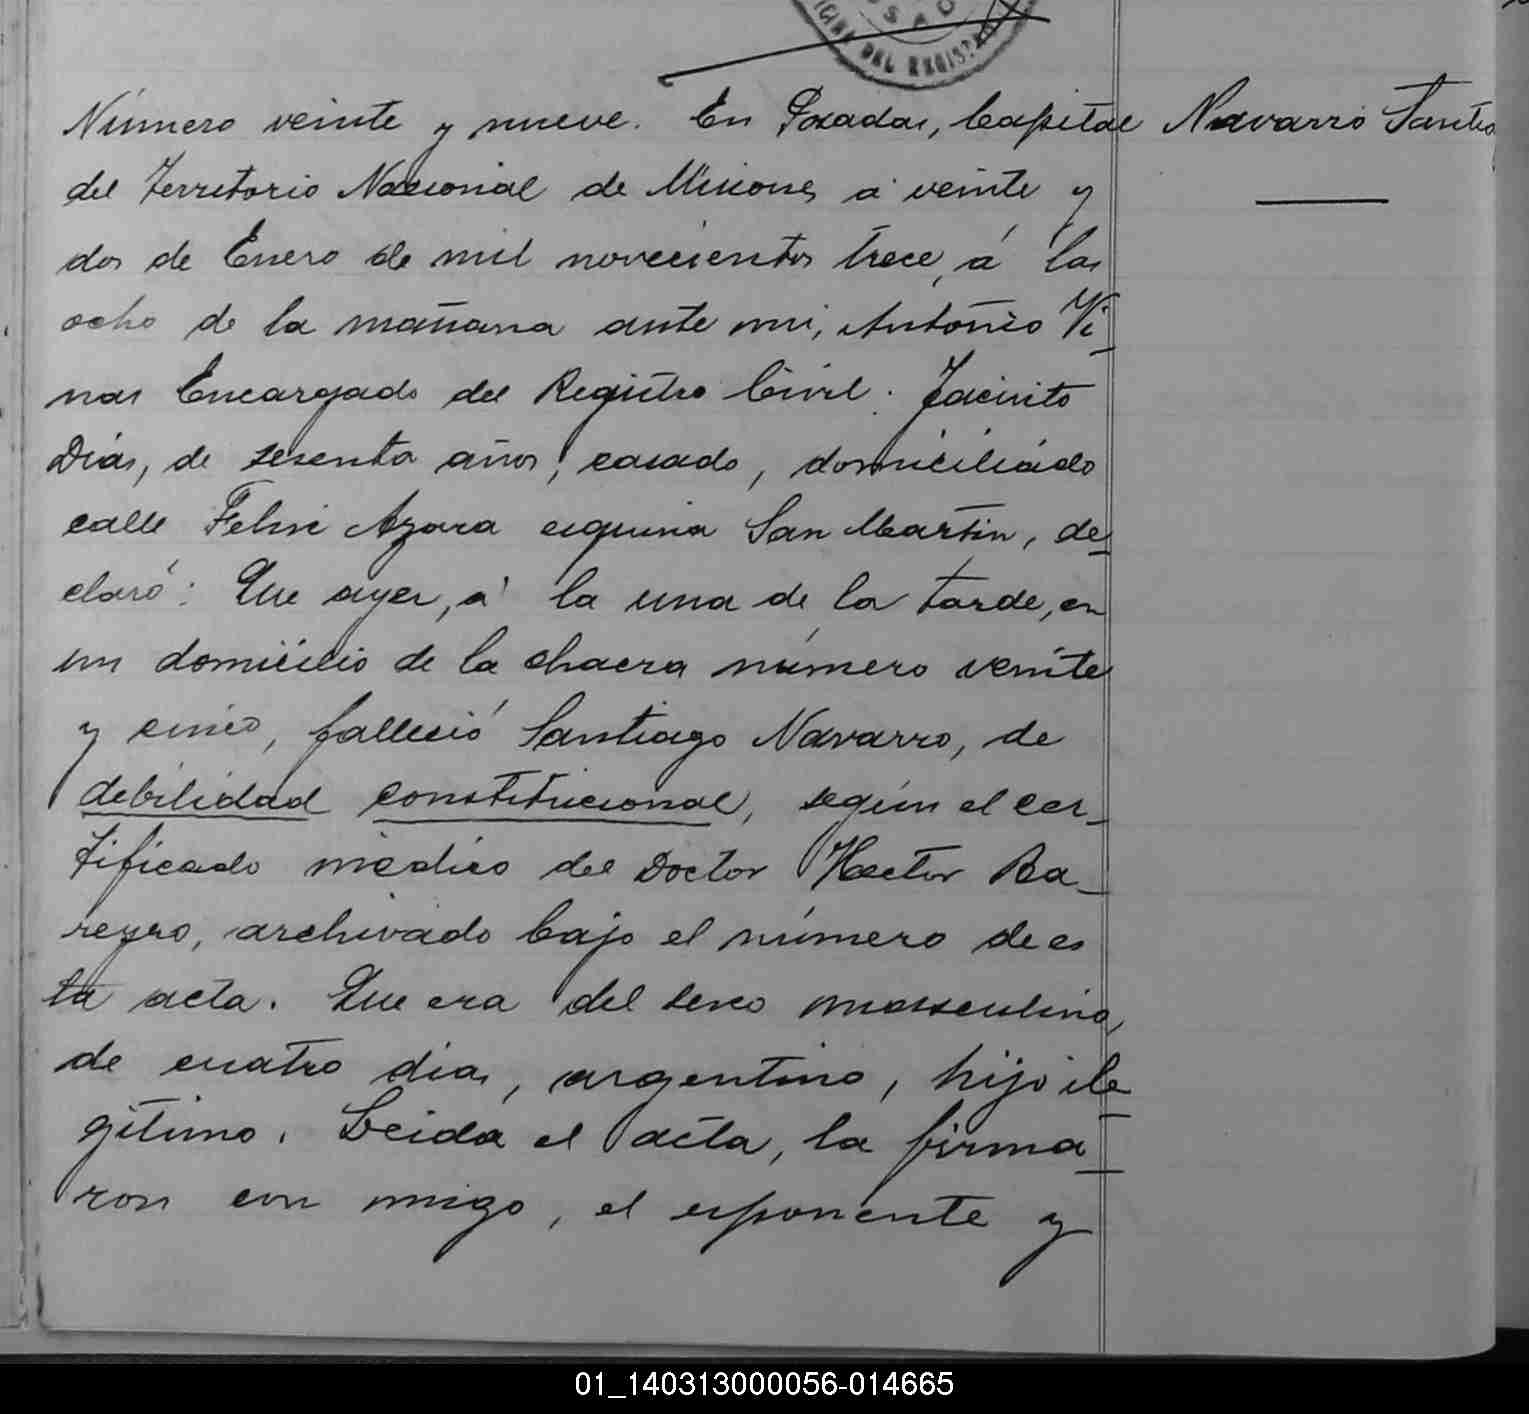 CINA DEL REGIST
Número veinte y nueve. En Posadas, Capital
Navarro Santia
del Territorio Nacional de Misiones á veinte y
dos de Enero de mil novecientos trece, á las
ocho de la mañana ante mi, Antonio Vi-
nas Encargado del Registro Civil: Jacinto
Dias, de sesenta años, casado, domiciliado
calle Felix Azara esquina San Martin, de-
claró: Que ayer, á la una de la tarde, en
un domicilio de la chacra número veinte
y cinco, falleció Santiago Navarro, de
debilidad constitucional, según el cer-
tificado médico del Doctor Hector Ba-
reyro, archivado bajo el número de es
ta acta. Que era del sexo masculino,
de cuatro dias, argentino, hijo ile-
gitimo. Leida el acta, la firma-
ron con migo, el esponente y
01_140313000056-014665